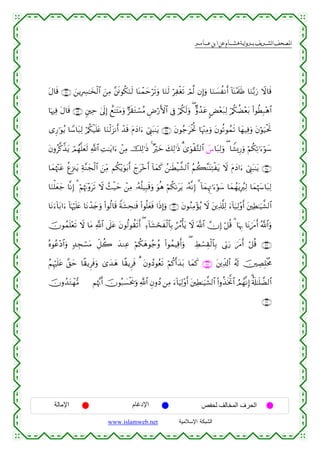 المصحف الشريف برواية هشام عن ابن عامر
قَالَا رَبَّنَا ظَلَمْنَآ أَنفُسَنَا وَإِن لَّمْ تَغْفِرْ لَنَا وَتَرْحَمْنَا لَنَكُونَنَّ مِنَ ٱلْخَـٰسِرِينَ قَالَ
ٱهْبِطُوا۟ بَعْضُكُمْ لِبَعْضٍ عَدُوٌّ ۖ وَلَكُمْ فِى ٱلْأَرْضِ مُسْتَقَرٌّ وَمَتَـٰعٌ إِلَىٰ حِينٍ قَالَ فِيهَا
تَحْيَوْنَ وَفِيهَا تَمُوتُونَ وَمِنْهَا تُخْرَجُونَ يَـٰبَنِىٓ ءَادَمَ قَدْ أَنزَلْنَا عَلَيْكُمْ لِبَاسًا يُوَٰرِى
سَوْءَٰتِكُمْ وَرِيشًا ۖ وَلِبَاسَ ٱلتَّقْوَىٰ ذَٰلِكَ خَيْرٌ ۚ ذَٰلِكَ مِنْ ءَايَـٰتِ ٱللَّهِ لَعَلَّهُمْ يَذَّكَّرُونَ
يَـٰبَنِىٓ ءَادَمَ لَا يَفْتِنَنَّكُمُ ٱلشَّيْطَـٰنُ كَمَآ أَخْرَجَ أَبَوَيْكُم مِّنَ ٱلْجَنَّةِ يَنزِعُ عَنْهُمَا
لِبَاسَهُمَا لِيُرِيَهُمَا سَوْءَٰتِهِمَآ ۗ إِنَّهُۥ يَرَىٰكُمْ هُوَ وَقَبِيلُهُۥ مِنْ حَيْثُ لَا تَرَوْنَهُمْ ۗ إِنَّا جَعَلْنَا
ٱلشَّيَـٰطِينَ أَوْلِيَآءَ لِلَّذِينَ لَا يُؤْمِنُونَ وَإِذَا فَعَلُوا۟ فَـٰحِشَةً قَالُوا۟ وَجَدْنَا عَلَيْهَآ ءَابَآءَنَا
وَٱللَّهُ أَمَرَنَا بِهَا ۗ قُلْ إِنَّ ٱللَّهَ لَا يَأْمُرُ بِٱلْفَحْشَآءِ ۖ أَتَقُولُونَ عَلَى ٱللَّهِ مَا لَا تَعْلَمُونَ
قُلْ أَمَرَ رَبِّى بِٱلْقِسْطِ ۖ وَأَقِيمُوا۟ وُجُوهَكُمْ عِندَ كُلِّ مَسْجِدٍ وَٱدْعُوهُ
مُخْلِصِينَ لَهُ ٱلدِّينَ ۚ كَمَا بَدَأَكُمْ تَعُودُونَ فَرِيقًا هَدَىٰ وَفَرِيقًا حَقَّ عَلَيْهِمُ
ٱلضَّلَـٰلَةُ ۗ إِنَّهُمُ ٱتَّخَذُوا۟ ٱلشَّيَـٰطِينَ أَوْلِيَآءَ مِن دُونِ ٱللَّهِ وَيَحْسَبُونَ أَنَّهُم مُّهْتَدُونَ
الحرف المخالف لحفص الإدغام الإمالة
الشبكة الإسلامية www.islamweb.net